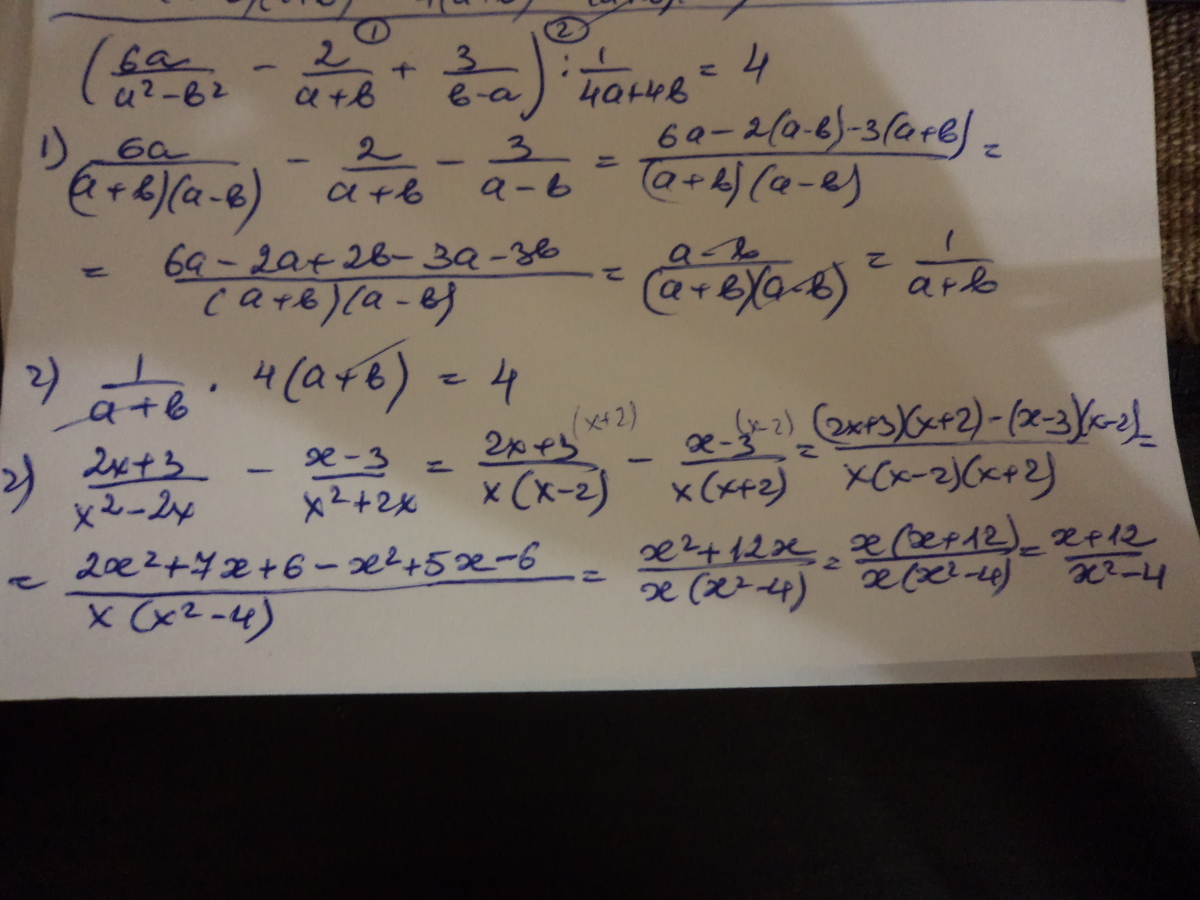 (6a/(a²-b²) - 2/(a+b) + 3/(b-a)) : 1/(4a+4b) = 4
① ②
1) 6a/((a+b)(a-b)) - 2/(a+b) - 3/(a-b) = (6a-2(a-b)-3(a+b))/((a+b)(a-b)) =
= (6a-2a+2b-3a-3b)/((a+b)(a-b)) = (a-b)/((a+b)(a-b)) = 1/(a+b)
2) 1/(a+b) · 4(a+b) = 4
2) (2x+3)/(x²-2x) - (x-3)/(x²+2x) = (2x+3)/(x(x-2)) (x+2) - (x-3)/(x(x+2)) (x-2) = ((2x+3)(x+2)-(x-3)(x-2))/(x(x-2)(x+2)) =
= (2x²+7x+6-x²+5x-6)/(x(x²-4)) = (x²+12x)/(x(x²-4)) = x(x+12)/(x(x²-4)) = (x+12)/(x²-4)